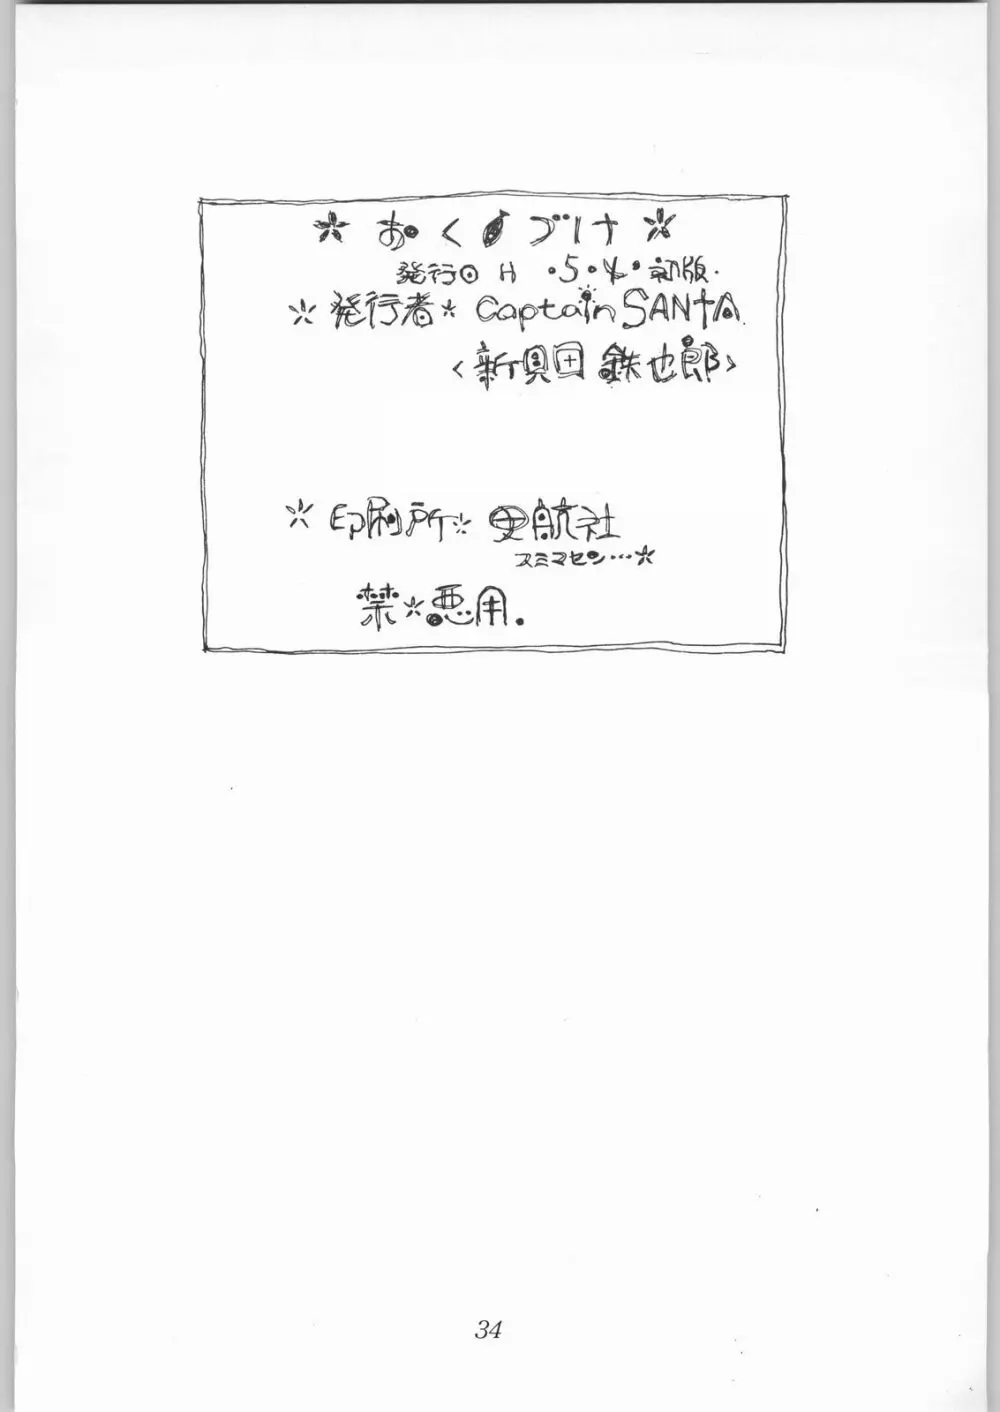 * おくづけ *
発行日 H ・5・4・初版.
* 発行者 * Captain SANTA.
<新貝田 鉄也郎>
* 印刷所 * 曳航社
スミマセン…*
禁*悪用.
34